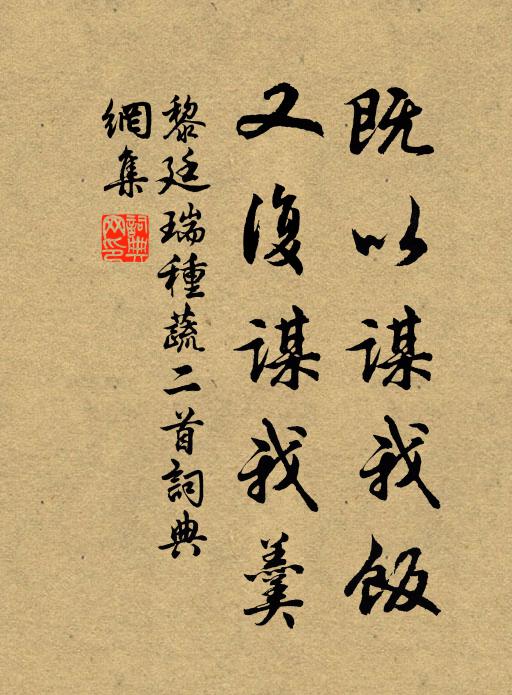 既以謀我飯
又復謀我羹
黎廷瑞種蔬二首詞典
網集
詞典
网印